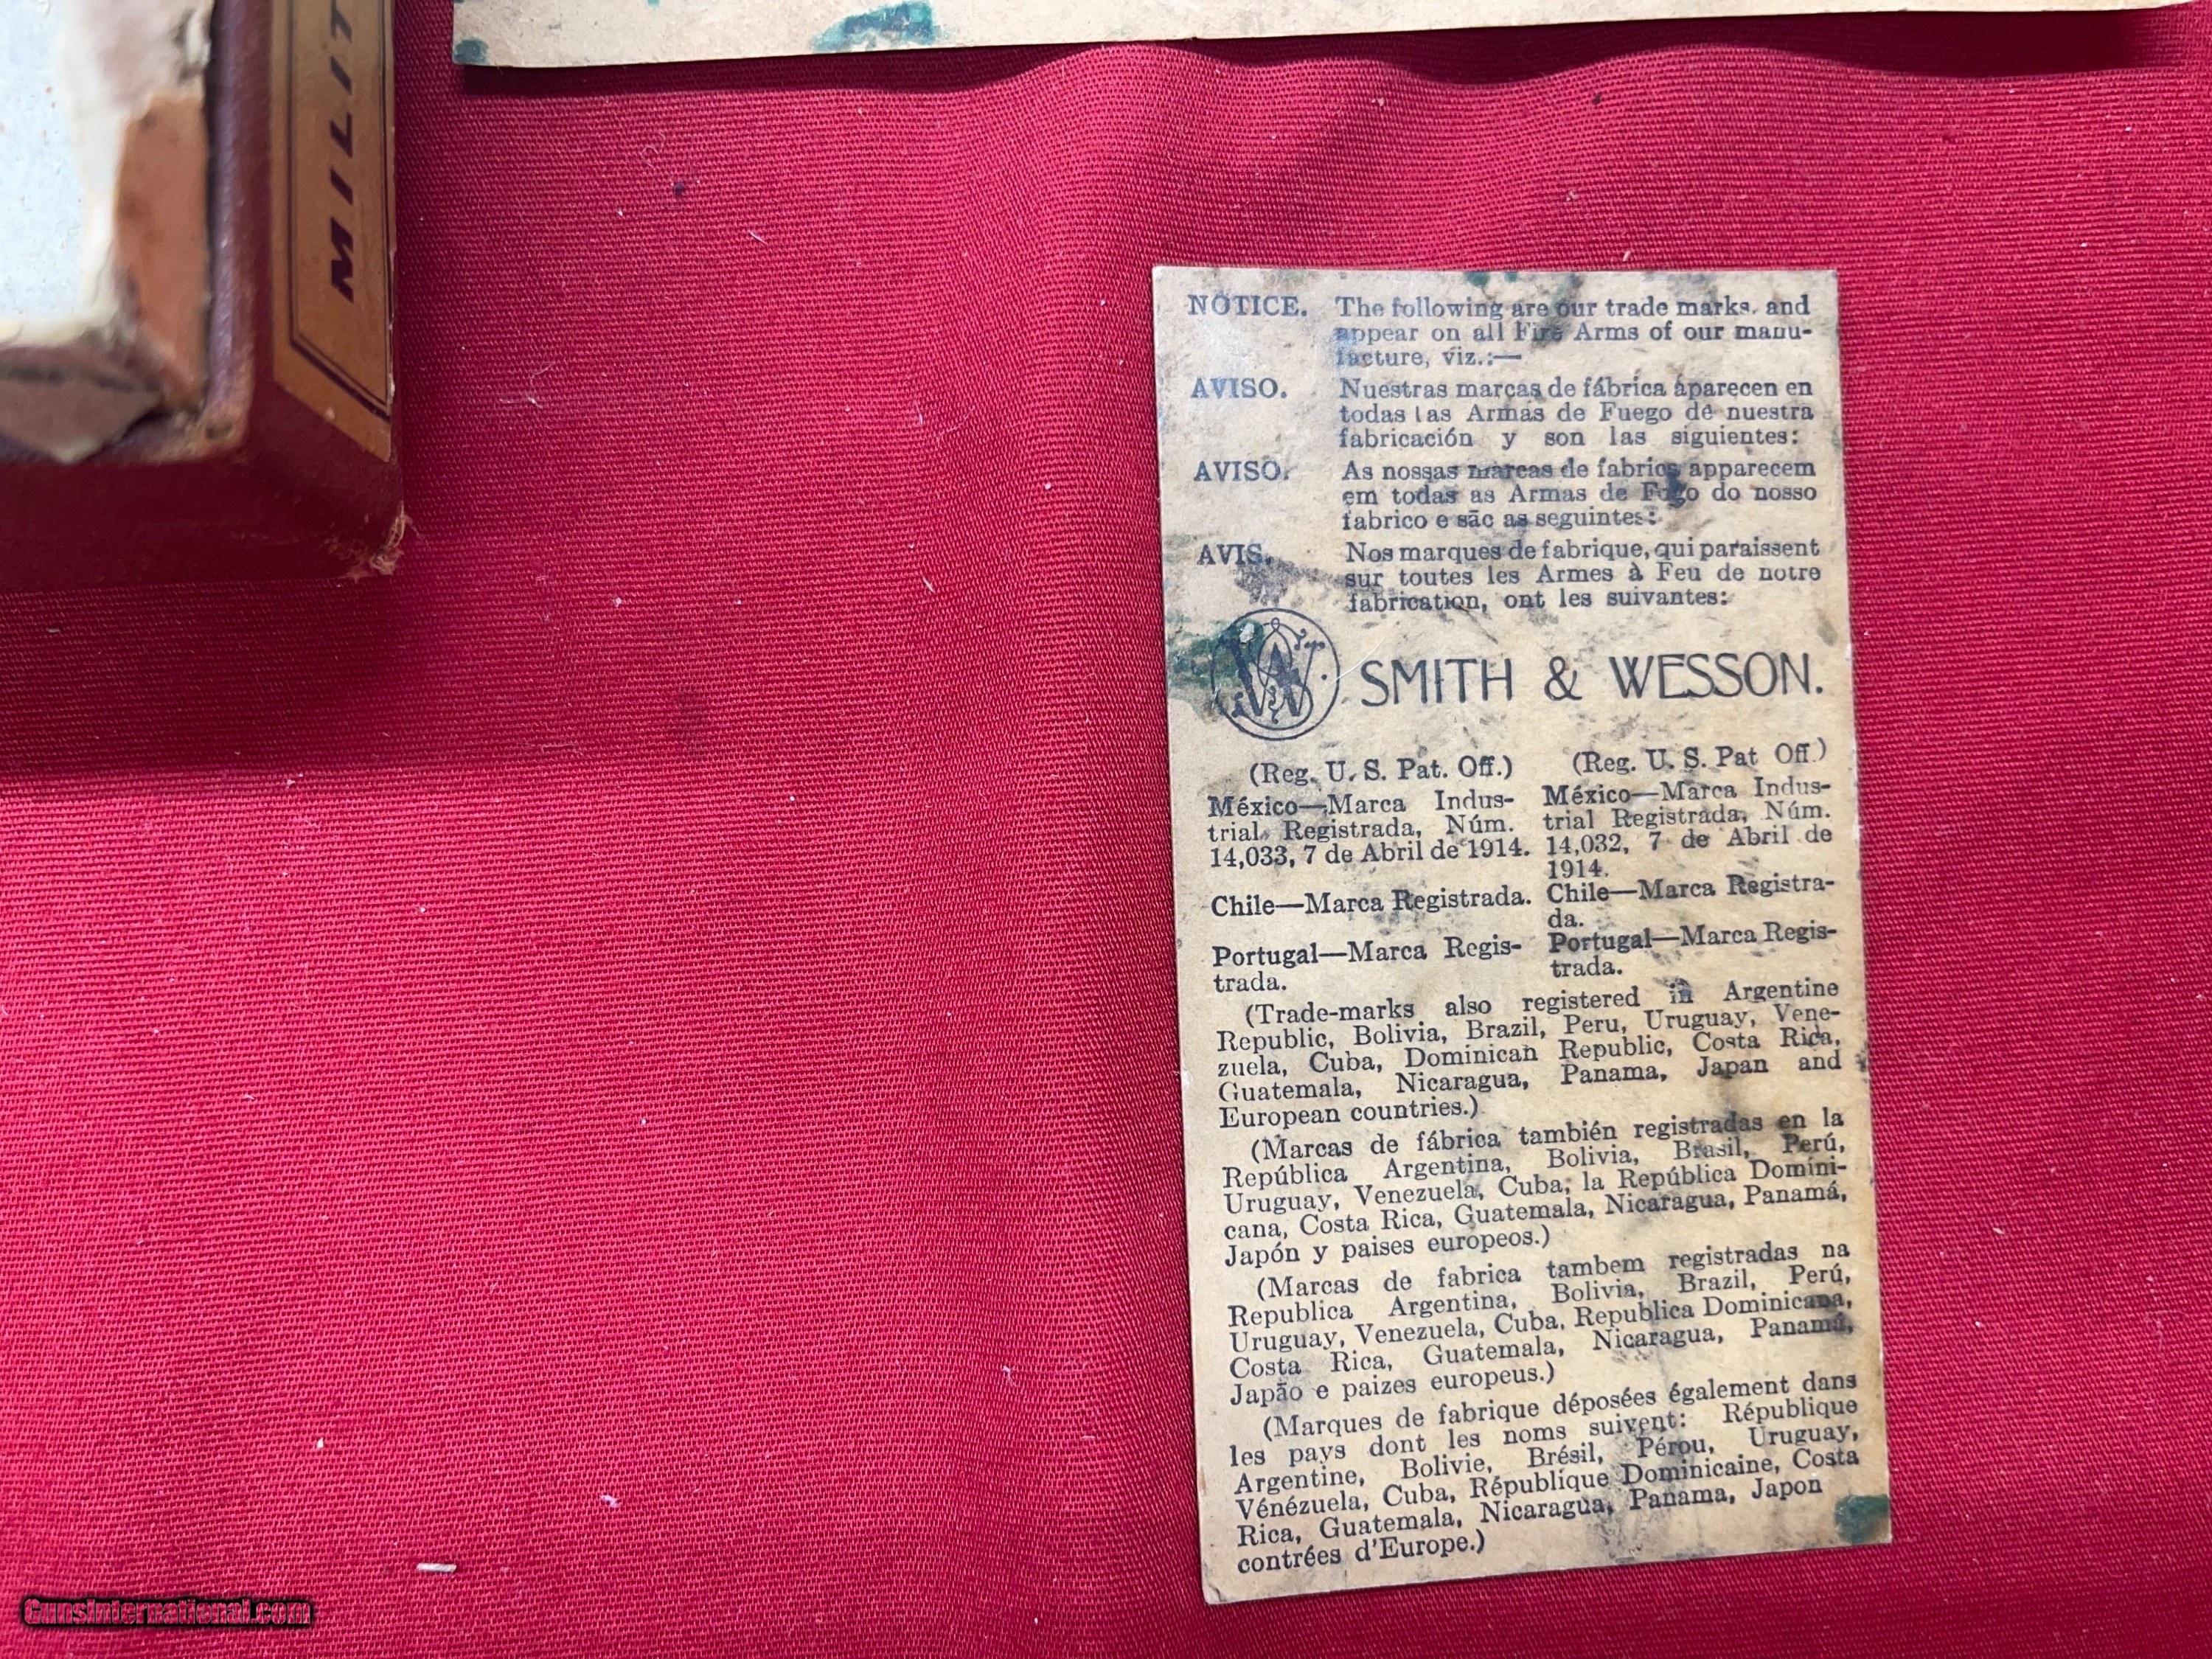 MILIT
NOTICE. The following are our trade marks, and
appear on all Fire Arms of our manu-
facture, viz.:—
AVISO. Nuestras marcas de fábrica aparecen en
todas las Armas de Fuego de nuestra
fabricación y son las siguientes:
AVISO. As nossas marcas de fabrica apparecem
em todas as Armas de Fogo do nosso
fabrico e são as seguintes:
AVIS. Nos marques de fabrique, qui paraissent
sur toutes les Armes à Feu de notre
fabrication, ont les suivantes:
SMITH & WESSON.
(Reg. U. S. Pat. Off.)
México—Marca Indus-
trial Registrada, Núm.
14,033, 7 de Abril de 1914.
Chile—Marca Registrada.
Portugal—Marca Regis-
trada.
(Reg. U. S. Pat Off.)
México—Marca Indus-
trial Registrada, Núm.
14,032, 7 de Abril de
1914.
Chile—Marca Registra-
da.
Portugal—Marca Regis-
trada.
(Trade-marks also registered in Argentine
Republic, Bolivia, Brazil, Peru, Uruguay, Vene-
zuela, Cuba, Dominican Republic, Costa Rica,
Guatemala, Nicaragua, Panama, Japan and
European countries.)
(Marcas de fábrica también registradas en la
República Argentina, Bolivia, Brasil, Perú,
Uruguay, Venezuela, Cuba, la República Domini-
cana, Costa Rica, Guatemala, Nicaragua, Panamá,
Japón y paises europeos.)
(Marcas de fabrica tambem registradas na
Republica Argentina, Bolivia, Brazil, Perú,
Uruguay, Venezuela, Cuba, Republica Dominicana,
Costa Rica, Guatemala, Nicaragua, Panamá,
Japão e paizes europeus.)
(Marques de fabrique déposées également dans
les pays dont les noms suivent: République
Argentine, Bolivie, Brésil, Pérou, Uruguay,
Vénézuela, Cuba, République Dominicaine, Costa
Rica, Guatemala, Nicaragua, Panama, Japon
contrées d'Europe.)
GunsInternational.com